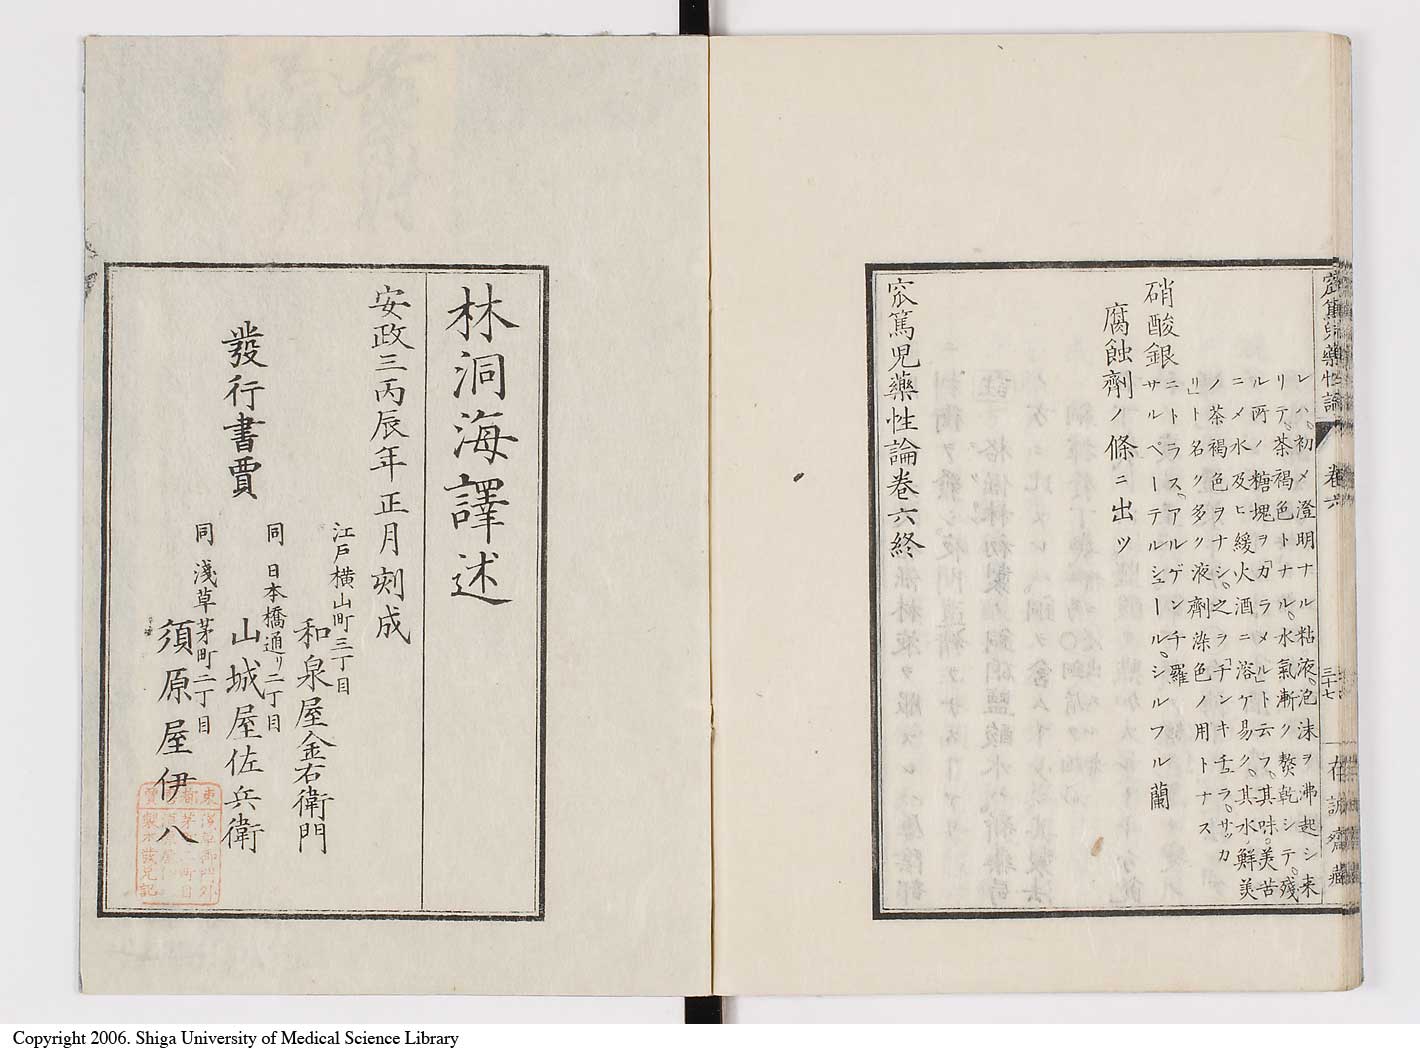 窊篤兒藥性論
卷六
三十七
在誠齋藏
レハ。初メ澄明ナル粘液。泡沫ヲ沸起シ来
リテ。茶褐色トナル。水氣漸ク熬乾シテ。殘
ル所ノ糖塊ヲ「カラメル」ト云フ。其味。美苦
ニメ水及ヒ緩火酒ニ溶ケ易ク。其水。鮮美
ノ茶褐色ヲナシ。之ヲ「チンキチュラ。サッカ
リ」ト名ク多ク液劑染色ノ用トナス
硝酸銀ニトラス。アルゲンチ羅
サルペーテルシュール。シルフル蘭
腐蝕劑ノ條ニ出ツ
窊篤児藥性論卷六終
林洞海譯述
安政三丙辰年正月刻成
發行書賈
江戸横山町三丁目
和泉屋金右衛門
同 日本橋通リ二丁目
山城屋佐兵衛
同 淺草茅町二丁目
須原屋伊八
Copyright 2006. Shiga University of Medical Science Library